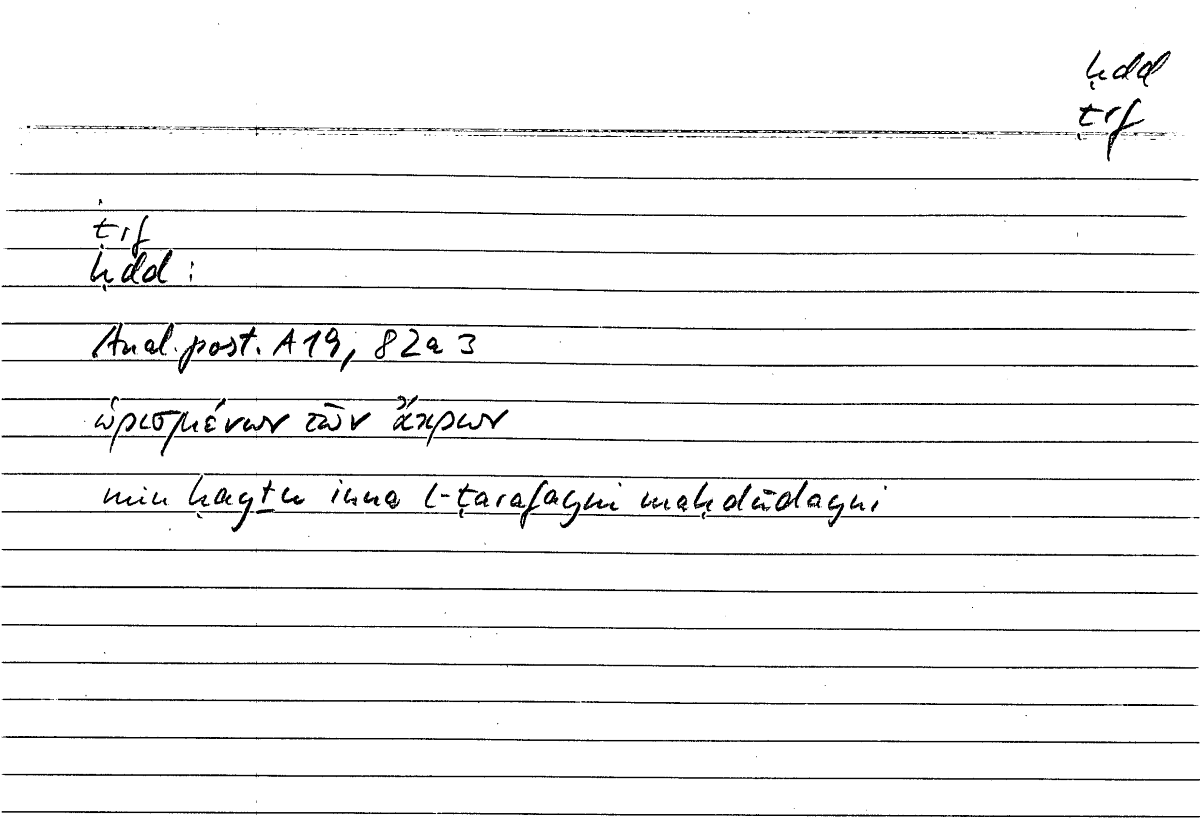 ḥdd
ṭrf
ṭrf
ḥdd :
Anal. post. A 19, 82a 3
ὡρισμένων τῶν ἄκρων
min ḥayṯu inna l-ṭarafayni maḥdūdayni